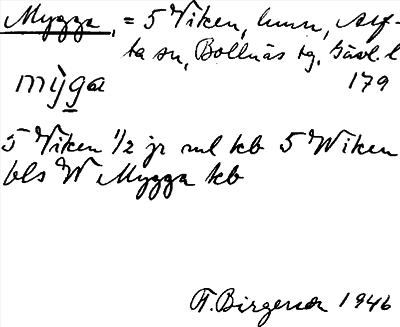 Mygga, = 5 Viken, hmn, Alf-
ta sn, Bollnäs tg, Gävl. l
mỳga 179
5 Viken 1/2 jr ml kb 5 Wiken
bls W Mygga kb
F. Birgerson 1946